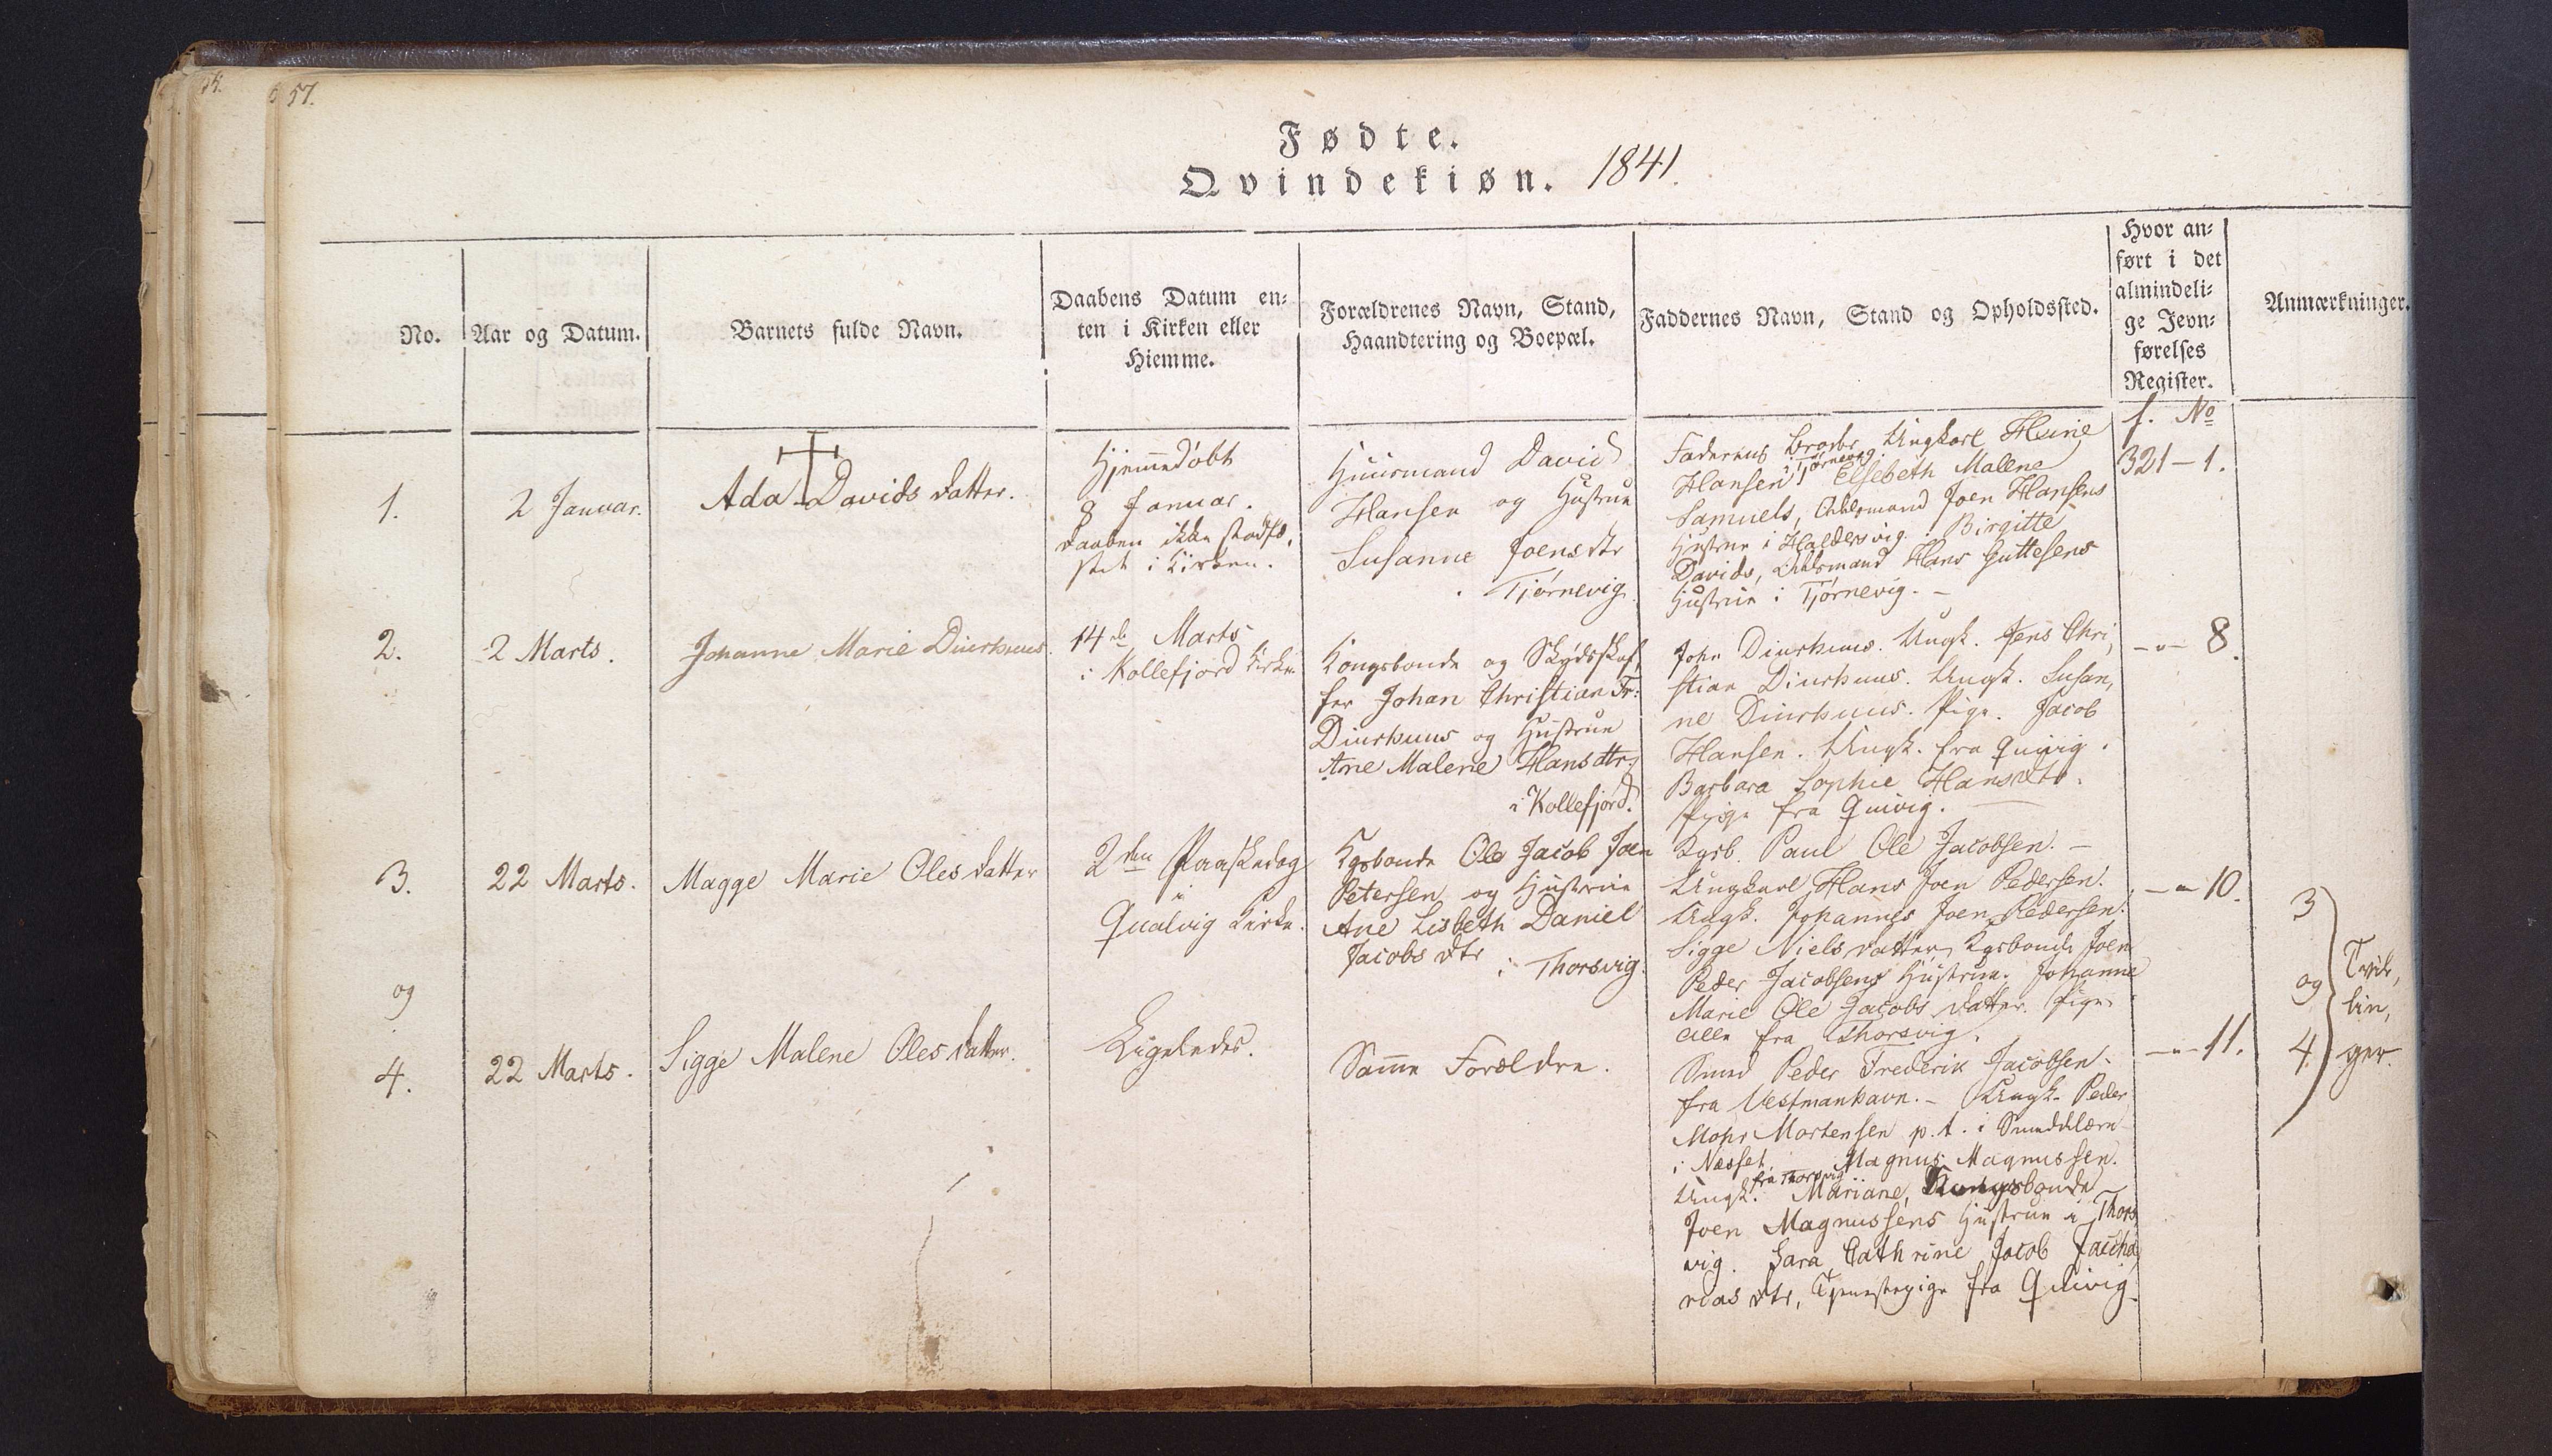 57.
Fødte.
Qvindekiøn. 1841.
No.
Aar og Datum.
Barnets fulde Navn.
Daabens Datum en-
ten i Kirken eller
Hiemme.
Forældrenes Navn, Stand,
Haandtering og Boepæl.
Faddernes Navn, Stand og Opholdssted.
Hvor an-
ført i det
almindeli-
ge Jevn-
førelses
Register.
Anmærkninger.
f. No
1.
2 Januar.
Ada Davids datter.
Hjemmedøbt
8 Januar.
Daaben ikke stadfæ,
stet i Kirken.
Huusmand David
Hansen og Hustrue
Susanne Joensdtr
i Tjørnevig.
Faderens Broder Ungkarl Heine
Hansen i Tjørnevig. Elsebeth Malene
Samuels, Odelsmand Joen Hansens
Hustrue i Haldersvig. Birgitte
Davids, Odelsmand Hans Guttesens
Hustrue i Tjørnevig. -
321-1.
2.
2 Marts.
Johanne Marie Diurhuus.
14de Marts
i Kollefjord Kirke.
Kongsbonde og Skydsskaf,
fer Johan Christian Fr:
Diurhuus og Hustrue
Ane Malene Hansdtr,
i Kollefjord.
John Diurhuus. Ungk. Jens Chri,
stian Diurhuus. Ungk. Susan,
ne Diurhuus. Pige. Jacob
Hansen. Ungk. fra Quivig.
Barbara Sophie Hansdtr.
Pige fra Quivig.
-"- 8.
3.
22 Marts.
Magge Marie Oles datter
2den Paaskedag
i
Qualvig Kirke.
Kgsbonde Ole Jacob Joen
Petersen og Hustrue
Ane Lisbeth Daniel
Jacobs dtr
i Thorsvig.
Kgsb. Paul Ole Jacobsen. -
Ungkarl Hans Joen Pedersen.
Ungk. Johannes Joen Pedersen.
Sigge Niels datter, Kgsbonde Joen
Peder Jacobsens Hustrue. Johanne
Marie Ole Jacobs datter. Pige
alle fra Thorsvig.
-"- 10.
og
4.
22 Marts.
Sigge Malene Oles datter.
Ligeledes.
Samme Forældre.
Smed Peder Frederik Jacobsen.
fra Vestmanhavn. - Ungk. Peder
Mohr Mortensen p.t. i Smeddelære
i Næsset. Magnus Magnussen.
Ungk. fra Thorsvig Mariane, Kongsbonde
Joen Magnussens Hustrue i Thors
vig. Sara Cathrine Jacob Zacha,
rias dtr, Tjenestepige fra Quivig.
-"- 11.
3
og
4.
Tvil,
lin,
ger.